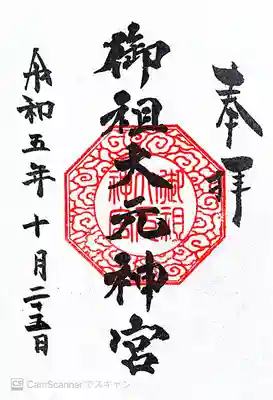 奉拝
御祖大元神宮
令和五年十月二十五日
CS CamScannerでスキャン